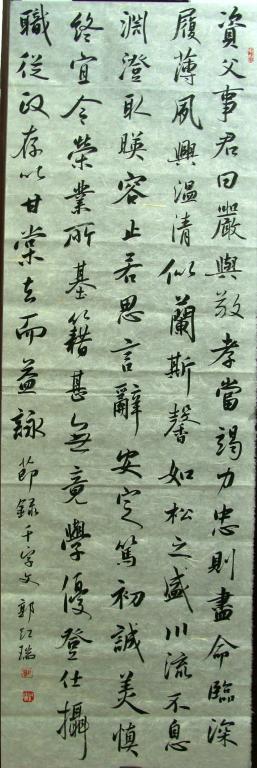 資父事君曰嚴與敬孝當竭力忠則盡命臨深
履薄夙興温凊似蘭斯馨如松之盛川流不息
淵澄取暎容止若思言辭安定篤初誠美慎
終宜令榮業所基籍甚無竟學優登仕攝
職從政存以甘棠去而益詠 節錄千字文 郭